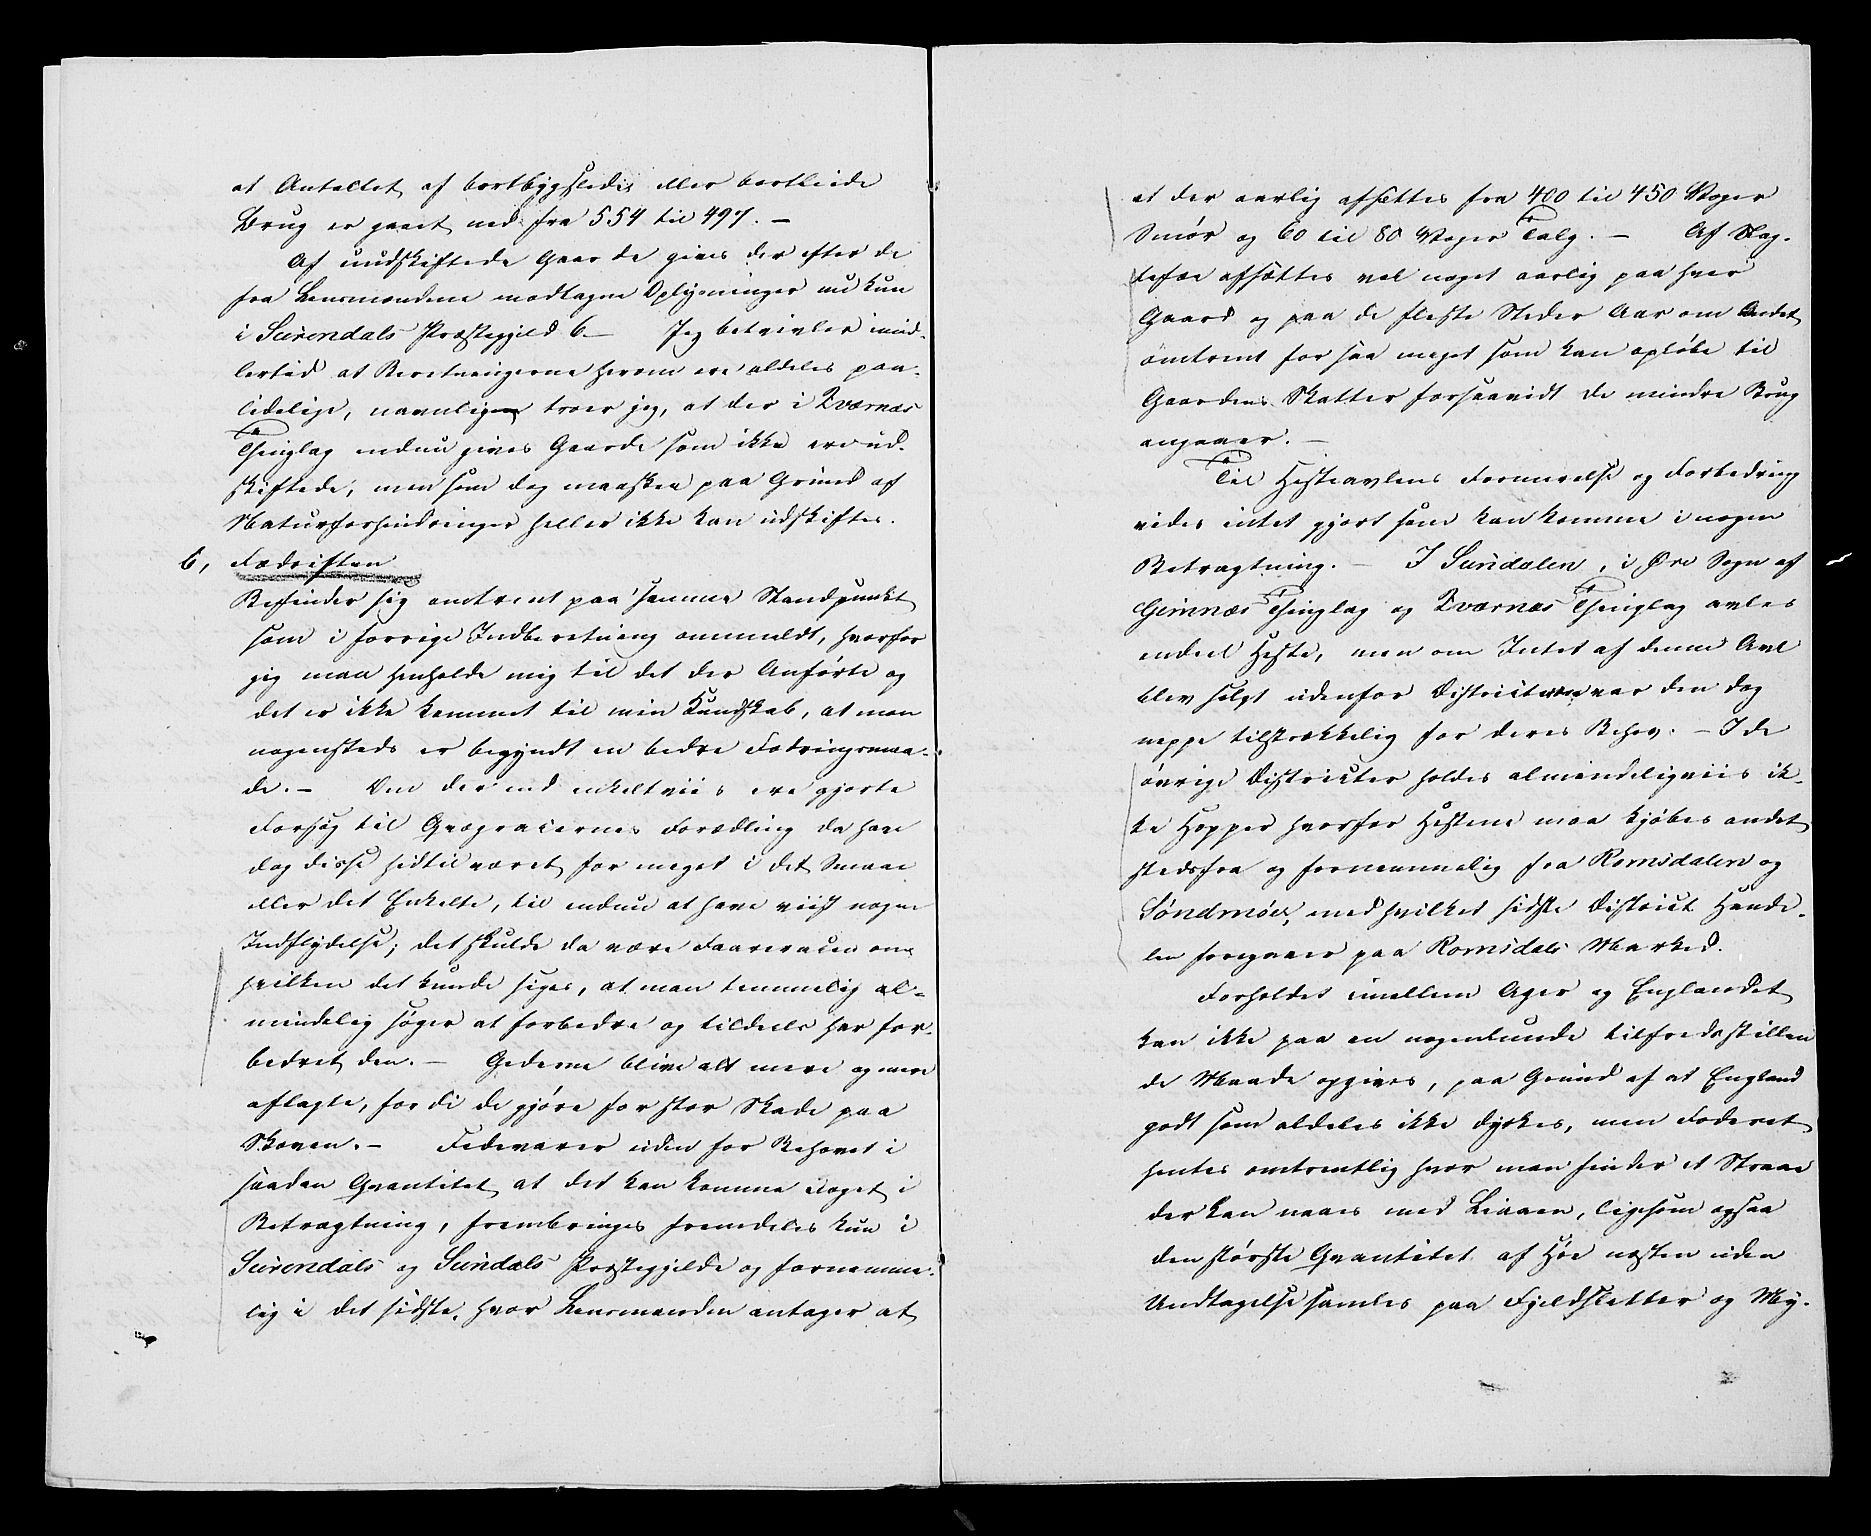 at Antallet af bortbygslede eller bortleiede
Brug er gaaet ned fra 554 til 497. –
Af uudskiftede Gaarde gives der efter de
fra Lensmændene modtagne Oplysninger nu kun
i Surendals Præstegjeld 6 – Jeg betvivler imid-
lertid at Beretningerne herom ere aldeles paa-
lidelige, navnligen troer jeg, at der i Qværnæs
Thinglag endnu gives Gaarde som ikke ere ud-
skiftede, men som dog maaskee paa Grund af
Naturforhindringer heller ikke kan udskiftes.
6, Fædriften
Befinder sig omtrent paa samme Standpunkt
som i forrige Indberetning ommeldt, hvorfor
jeg maa henholde mig til det der Anførte og
det er ikke kommet til min Kundskab, at man
nogensteds er begyndt en bedre Fodringsmaa-
de. – Om der end enkeltviis ere gjorte
Forsøg til Qvægracernes Forædling da have
dog disse hidtil været for meget i det Smaae
eller det Enkelte, til endnu at have viist nogen
Indflydelse; det skulde da være Faareracen om
hvilken det kunde siges, at man temmelig al-
mindelig søger at forbedre og tildeels har for-
bedret den. – Gederne blive alt mere og mere
aflagte, fordi de gjøre for stor Skade paa
Skoven. – Fedevarer uden for Behovet i
saadan Qvantitet at det kan komme noget i
Betragtning, frembringes fremdeles kun i
Surendals og Sundals Præstegjelde og fornemme-
lig i det sidste, hvor Lensmanden antager at
at der aarlig afsættes fra 400 til 450 Voger
Smør og 60 til 80 Voger Talg. – Af Slag-
tefæe afsættes vel noget aarlig paa hver
Gaard og paa de fleste Steder Aar om Andet
omtrent for saa meget som kan opløbe til
Gaardens Skatter forsaavidt de mindre Brug
angaaer. –
Til Hesteavlens Formerelse og Forbedring
vides intet gjort som kan komme i nogen
Betragtning. – I Sundalen, i Øre Sogn af
Gimnæs Thinglag og Qværnæs Thinglag avles
endeel Heste, men om Intet af denne Avl
blev solgt udenfor Districterne var den dog
neppe tilstrækkelig for deres Behov. – I de
øvrige Districter holdes almindeligviis ik-
ke Hopper hvorfor Hestene maa kjøbes andet
stedsfra og fornemmelig fra Romsdalen og
Søndmøer, med hvilket sidste District Hande-
len foregaaer paa Romsdals Marked.
Forholdet imellem Ager og Englandet
kan ikke paa en nogenlunde tilfredsstillen
de Maade opgives, paa Grund af at England
godt som aldeles ikke dyrkes, men Foderet
hentes omtrentlig hvor man finder et Straae
der kan naaes med Liaaen, ligesom ogsaa
den største Qvantitet af Høe næsten uden
Undtagelse samles paa Fjeldsletter og My-